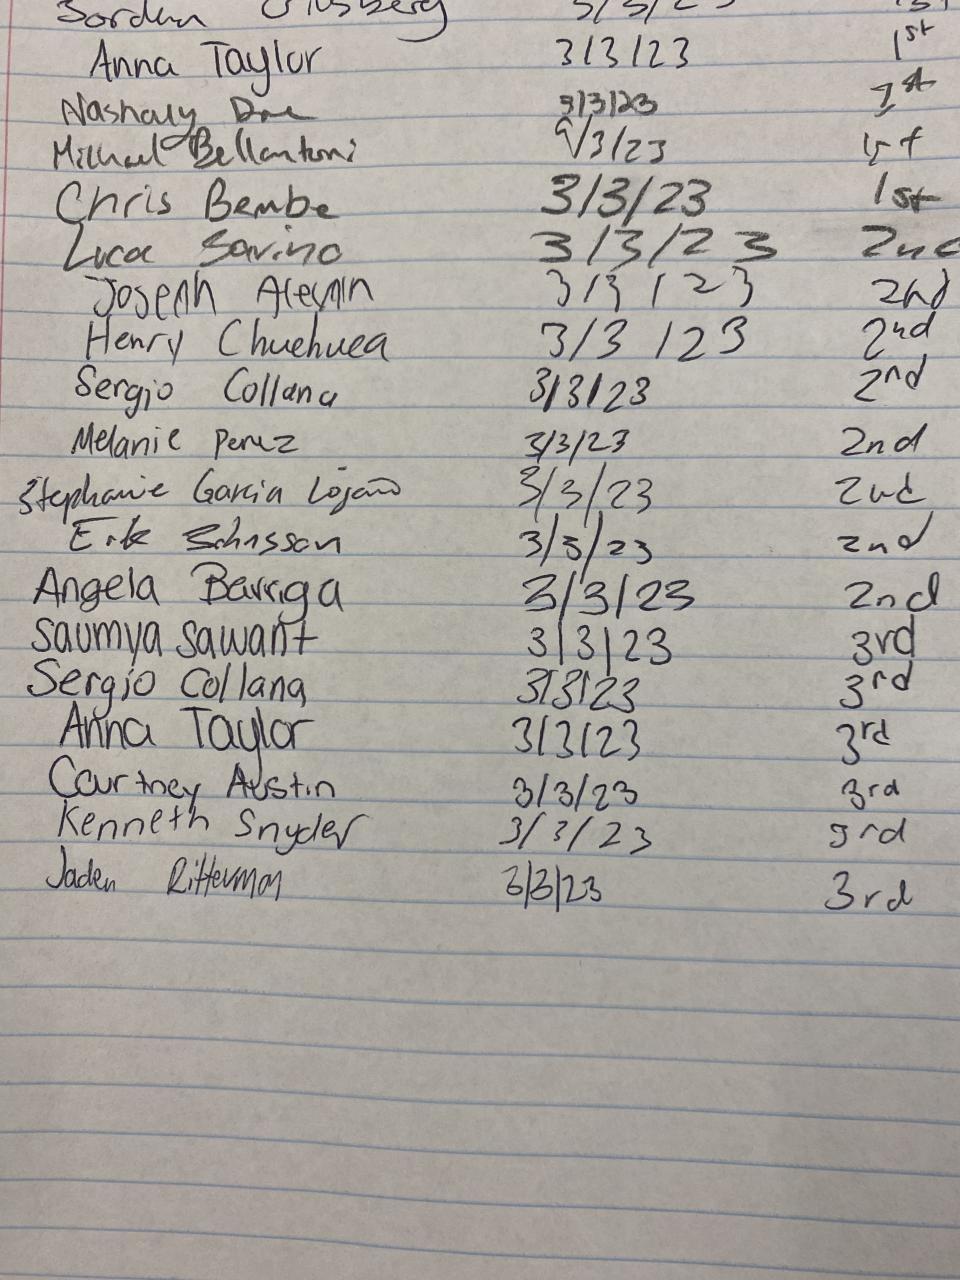 Jordan Ginsberg 3/3/23 1st
Anna Taylor 3/3/23 1st
Nashaly 3/3/23 1st
Michael Bellantoni 3/3/23 1st
Chris Bembe 3/3/23 1st
Luca Savino 3/3/23 2nd
Joseph 3/3/23 2nd
Henry Chuehuea 3/3/23 2nd
Sergio Collana 3/3/23 2nd
Melanie Perez 3/3/23 2nd
Stephanie Garcia Lojano 3/3/23 2nd
Erik 3/3/23 2nd
Angela Barriga 3/3/23 2nd
Saumya Sawant 3/3/23 3rd
Sergio Collana 3/3/23 3rd
Anna Taylor 3/3/23 3rd
Courtney Austin 3/3/23 3rd
Kenneth Snyder 3/3/23 3rd
Jaden Ritterman 3/3/23 3rd